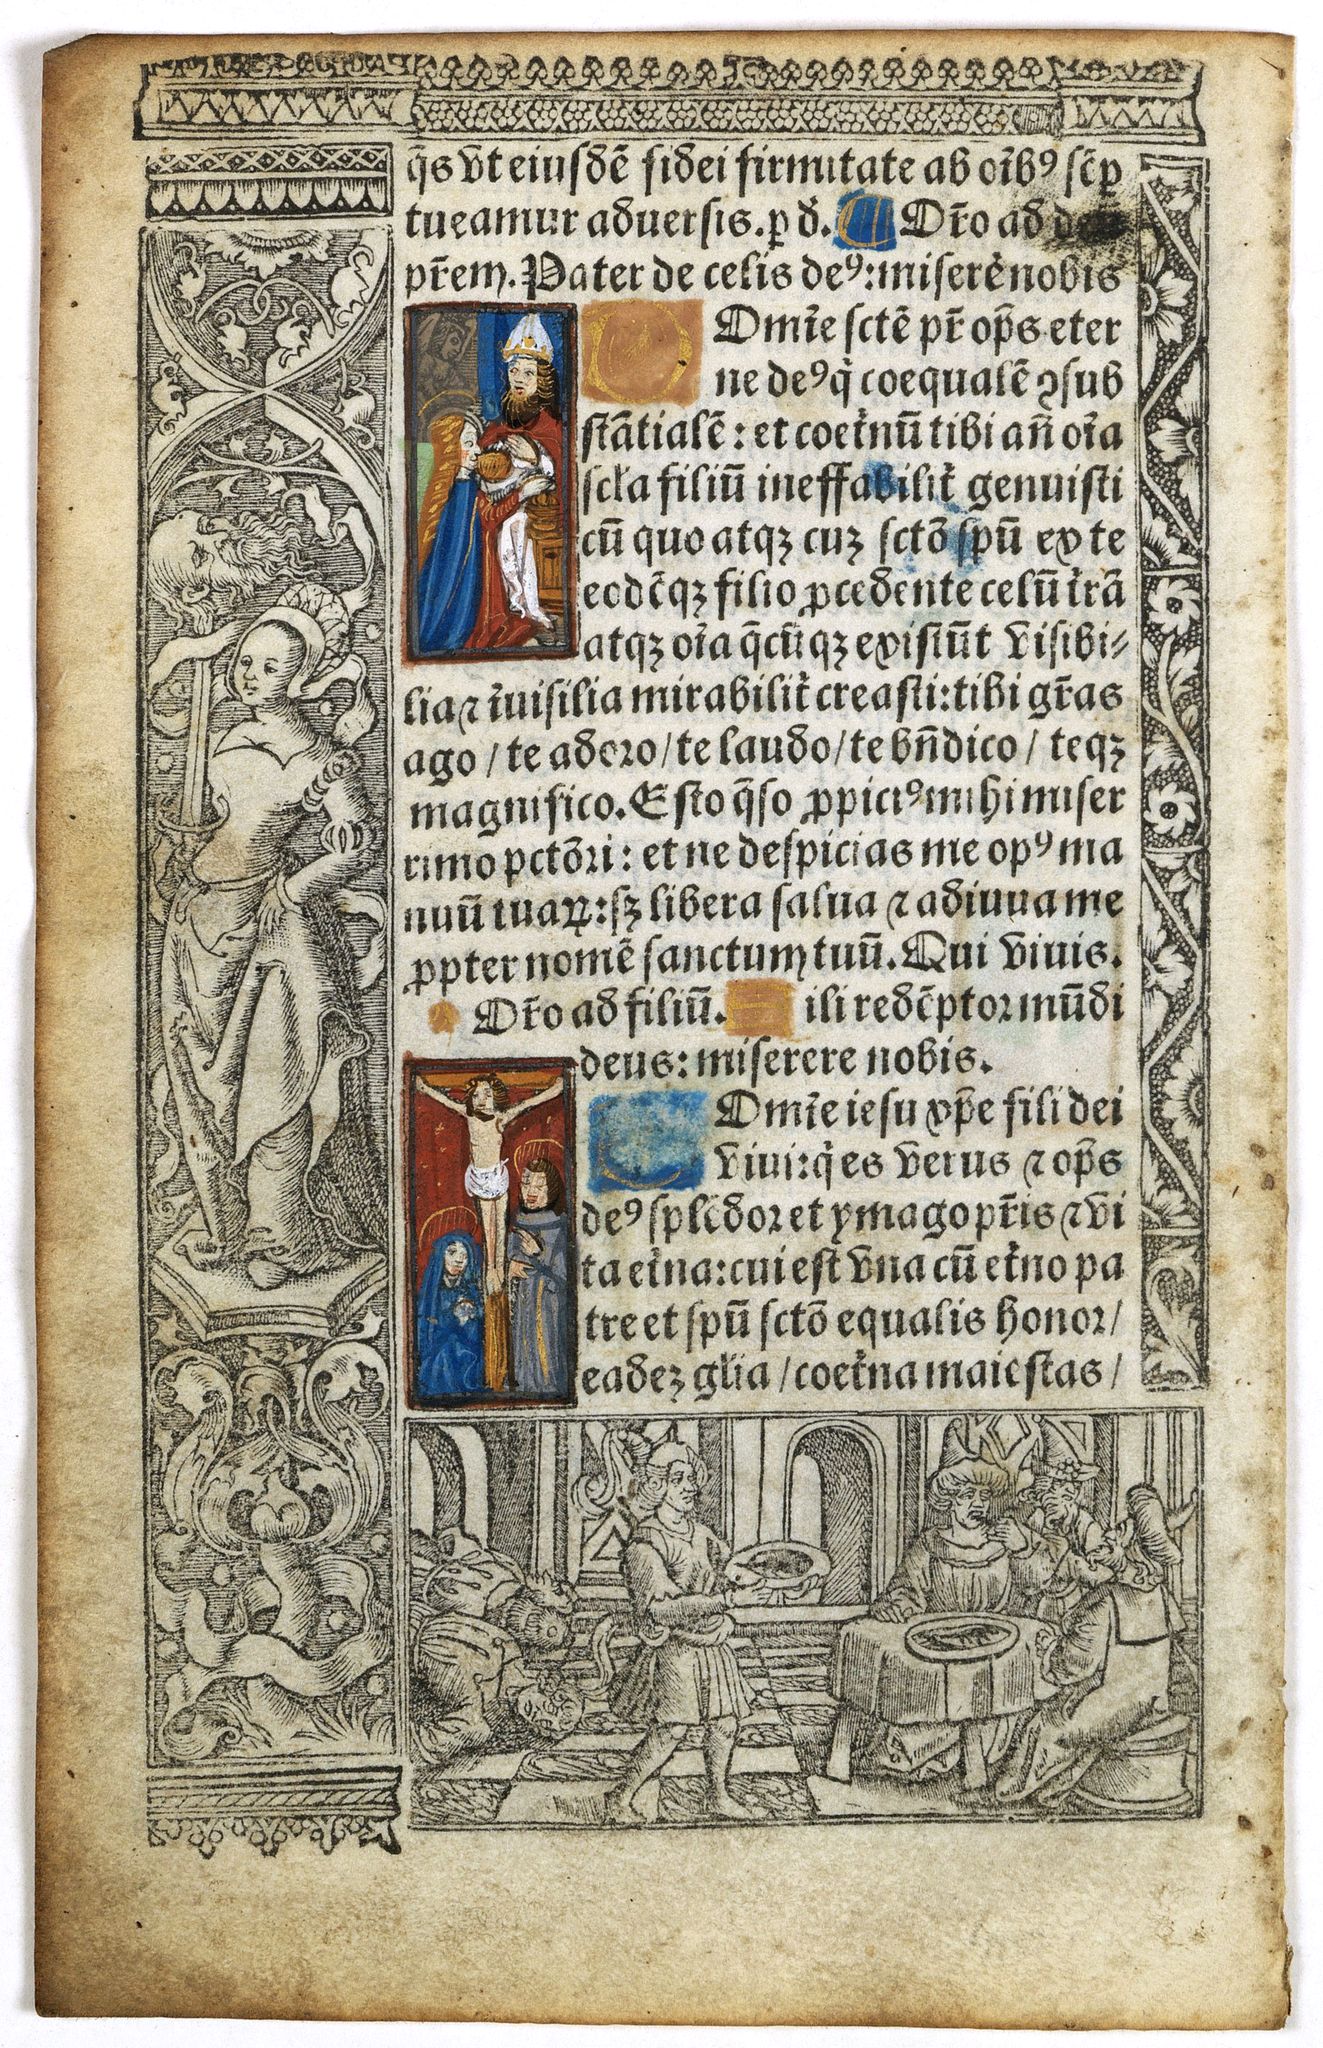 q̄s vt eiusdē fidei firmitate ab oı̄bꝰ sēꝑ
tueamur aduersis. ꝑ d. Or̄o ad
pr̄em. Pater de celis deꝰ: miserē nobis
Omı̄e sctē pr̄ op̄s eter
ne deꝰ q̄ coequalē ꝯsub
stātialē: et coet̄nū tibi an̄ oı̄a
scl̄a filiū ineffabilit̄ genuisti
cū quo atqꝫ cuꝫ sctō spū ex te
eodēqꝫ filio ꝓcedente celū t̄rā
atqꝫ oı̄a q̄cūqꝫ existūt visibi⸗
lia ⁊ īuisilia mirabilit̄ creasti: tibi gr̄as
ago / te adoro / te laudo / te bn̄dico / teqꝫ
magnifico. Esto q̄so ꝓpiciꝰ mihi miser
rimo pctōri: et ne despicias me opꝰ ma
nuū tuaꝝ: sꝫ libera salua ⁊ adiuua me
ꝓpter nomē sanctum tuū. Qui viuis.
Or̄o ad filiū. ili redēptor mūdi
deus: miserere nobis.
Omı̄e iesu xp̄e fili dei
viui: q̄ es verus ⁊ op̄s
deꝰ splēdor et ymago pr̄is ⁊ vi
ta et̄na: cui est vna cū et̄no pa
tre et spū sctō equalis honor /
eadeꝫ gl̄ia / coet̄na maiestas /